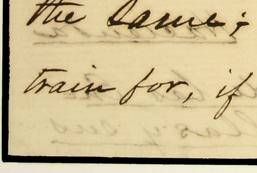 the same;
train for, if